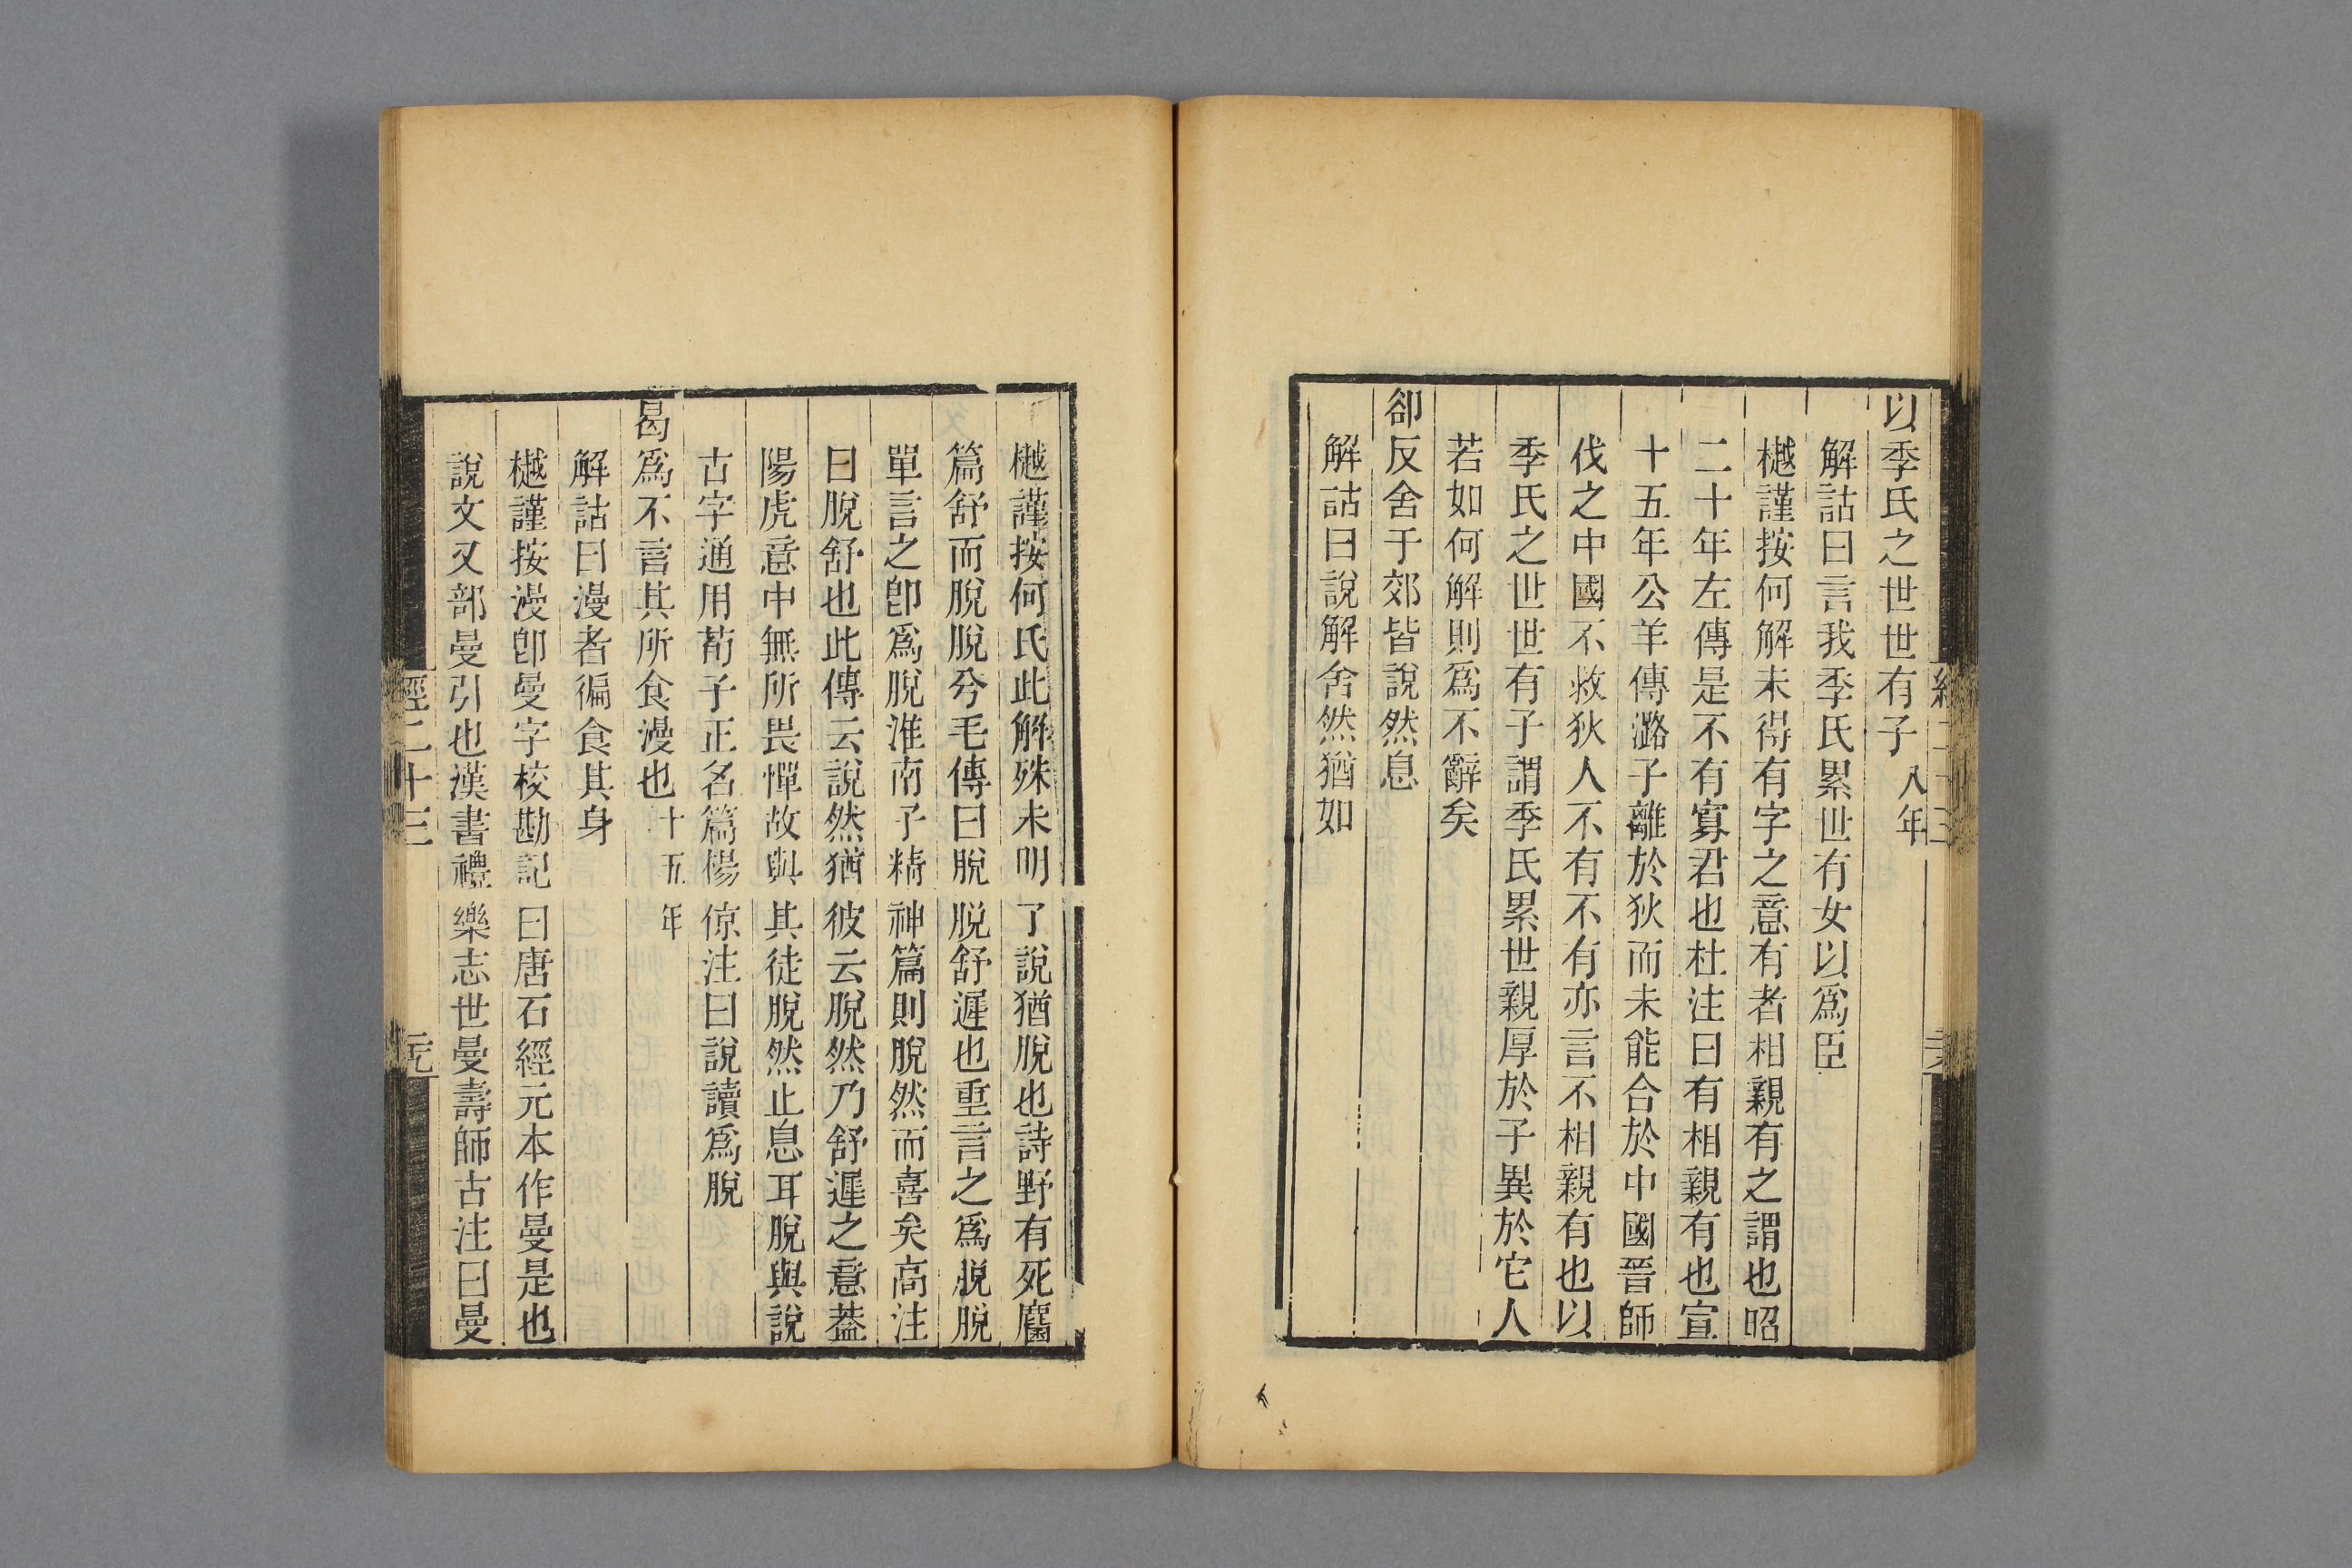 以季氏之世世有子 八年
解詁曰言我季氏累世有女以爲臣
樾謹按何解未得有字之意有者相親有之謂也昭
二十年左傳是不有寡君也杜注曰有相親有也宣
十五年公羊傳潞子離於狄而未能合於中國晉師
伐之中國不救狄人不有不有亦言不相親有也以
季氏之世世有子謂季氏累世親厚於子異於它人
若如何解則爲不辭矣
卻反舍于郊皆說然息
解詁曰說解舍然猶如
樾謹按何氏此解殊未明了說猶脫也詩野有死麕
篇舒而脫脫兮毛傳曰脫脫舒遲也重言之爲脫脫
單言之卽爲脫淮南子精神篇則脫然而喜矣高注
曰脫舒也此傳云說然猶彼云脫然乃舒遲之意葢
陽虎意中無所畏憚故與其徒脫然止息耳脫與說
古字通用荀子正名篇楊倞注曰說讀爲脫
曷爲不言其所食漫也 十五年
解詁曰漫者徧食其身
樾謹按漫卽曼字校勘記曰唐石經元本作曼是也
說文又部曼引也漢書禮樂志世曼壽師古注曰曼
經二十三